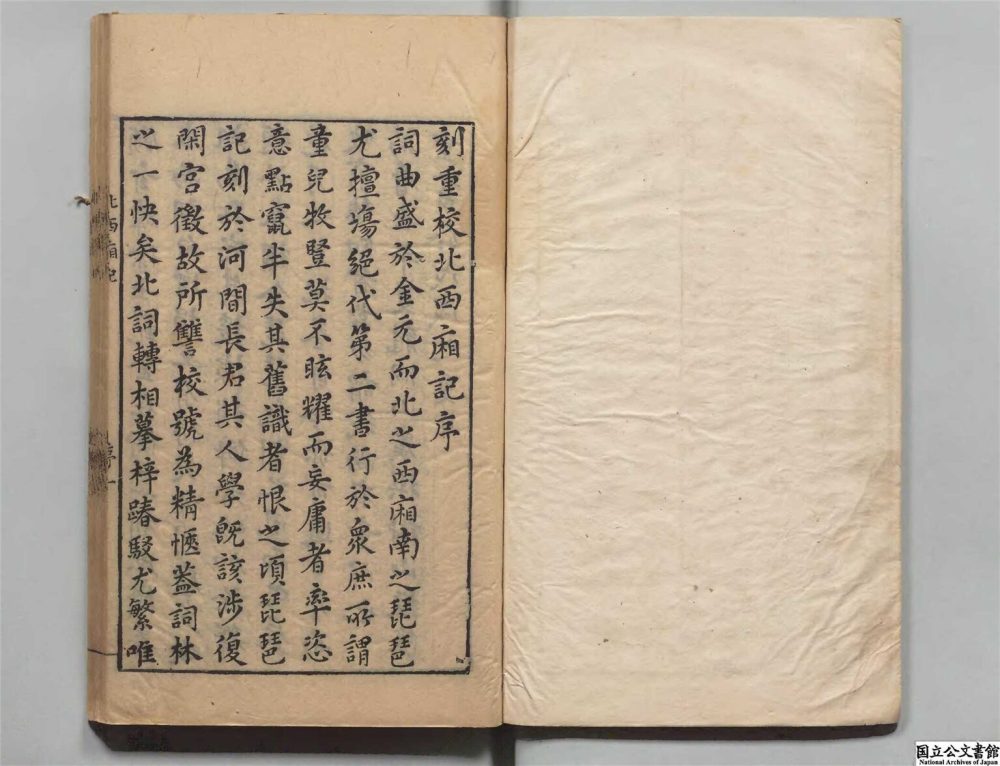 刻重校北西廂記序
詞曲盛於金元而北之西廂南之琵琶
尤擅塲絕代第二書行於衆庶所謂
童兒牧豎莫不眩耀而妄庸者率恣
意點竄半失其舊識者恨之頃琵琶
記刻於河間長君其人學旣該涉復
閑宮徵故所讐校號為精愜葢詞林
之一快矣北詞轉相摹梓踳駁尤繁唯
北西廂記
序
一
国立公文書館
National Archives of Japan